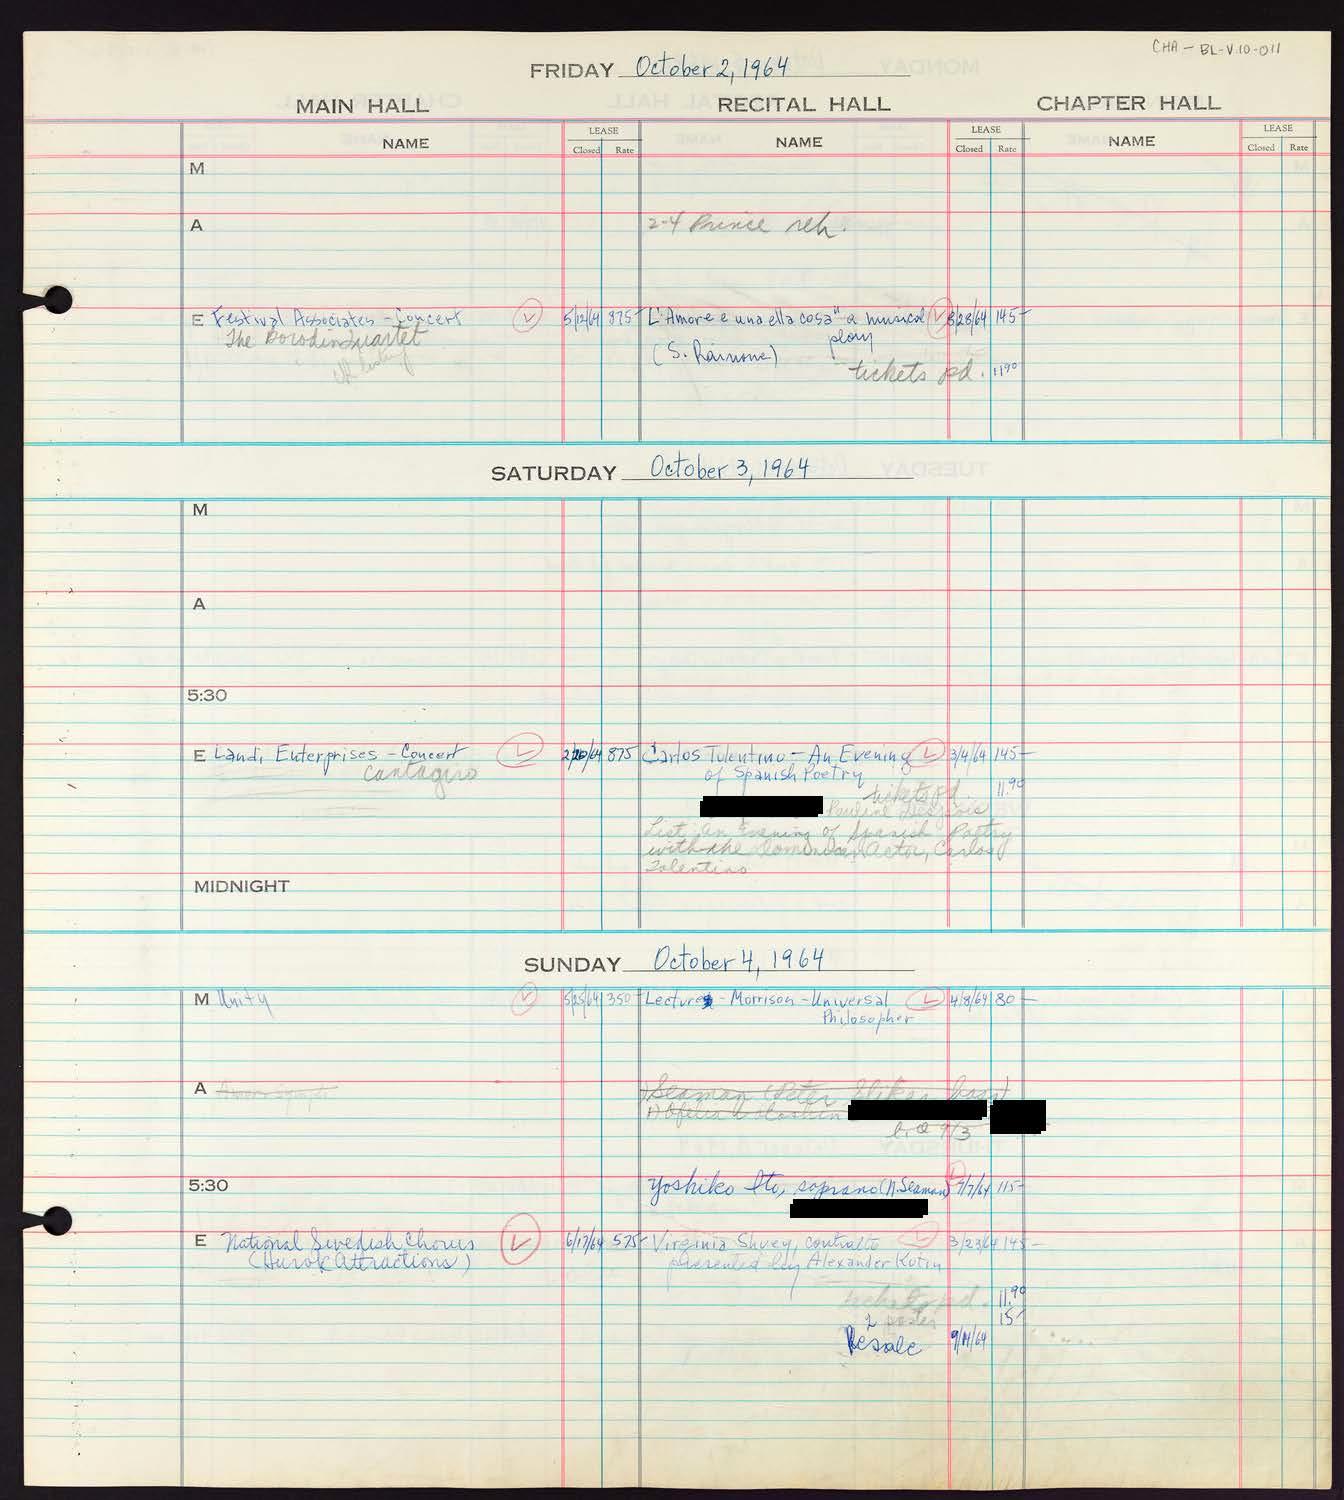 CHA-BL-V.10-011
FRIDAY October 2, 1964
MAIN HALL RECITAL HALL CHAPTER HALL
NAME LEASE NAME LEASE NAME LEASE
Closed Rate Closed Rate Closed Rate
M
A 2-4 Prince reh.
E Festival Associates - Concert 5/12/64 875- L'Amore e una ella cosa" a musical 8/28/64 145-
The Borodin Quartet play
(S. Rainone)
tickets pd. 11.90
SATURDAY October 3, 1964
M
A
5:30
E Landi Enterprises - Concert 875 Carlos Tolentino - An Evening 3/4/64 145-
Cantagiro of Spanish Poetry
tickets pd. 11.90
Pauline
List: An Evening of Spanish Poetry
with the Dominican Actor, Carlos
Tolentino
MIDNIGHT
SUNDAY October 4, 1964
M Unity 5/25/64 350- Lecture - Morrison - Universal 4/8/64 80-
Philosopher
A Seaman (Peter bass)
9/3
5:30 Yoshiko Ito, soprano (N. Seaman) 9/7/64 115-
E National Swedish Chorus 6/17/64 575- Virginia Shuey, contralto 3/23/64 145-
(Hurok Attractions) presented by Alexander Kutin
tickets pd. 11.90
2 poster 15-
Resale 9/14/64